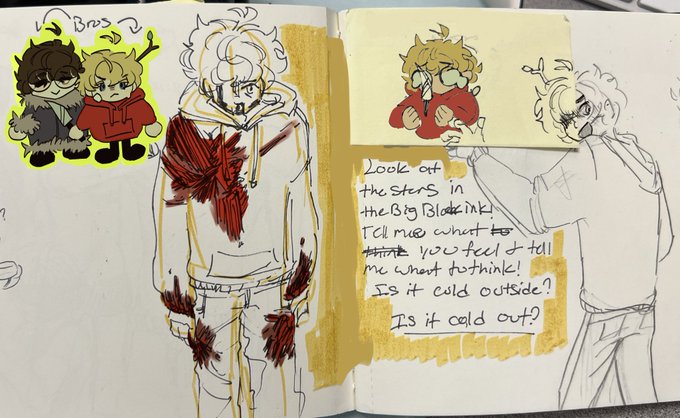 Bros
Look at
the stars in
the Big Black ink!
Tell me what to
think you feel & tell
me what to think!
Is it cold outside?
Is it cold out?